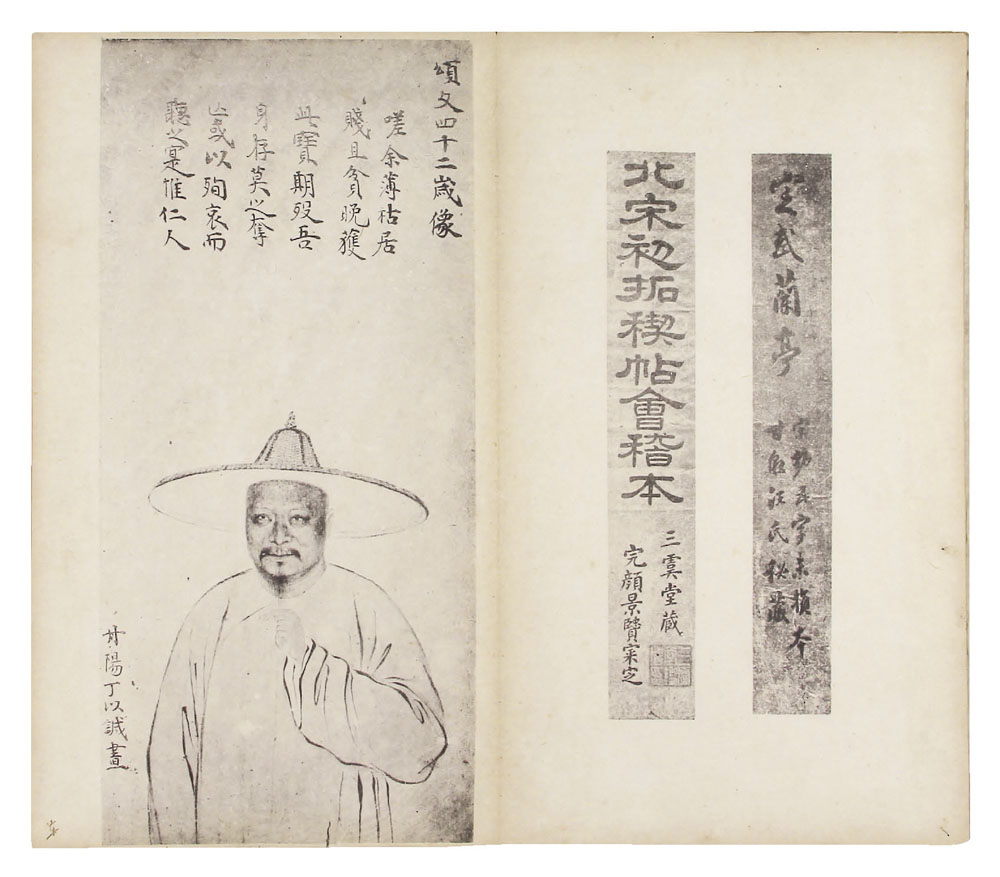 定武蘭亭
宋拓五字未損本
甘泉汪氏秘藏
北宋初拓稧帖會稽本
三虞堂藏
完顔景賢寀定
頌父四十二歲像
嗟余薄祜居
賤且貧晚獲
此寶期歿吾
身存莫之奪
亾或以殉哀而
聽之寔惟仁人
丹陽丁以誠畫